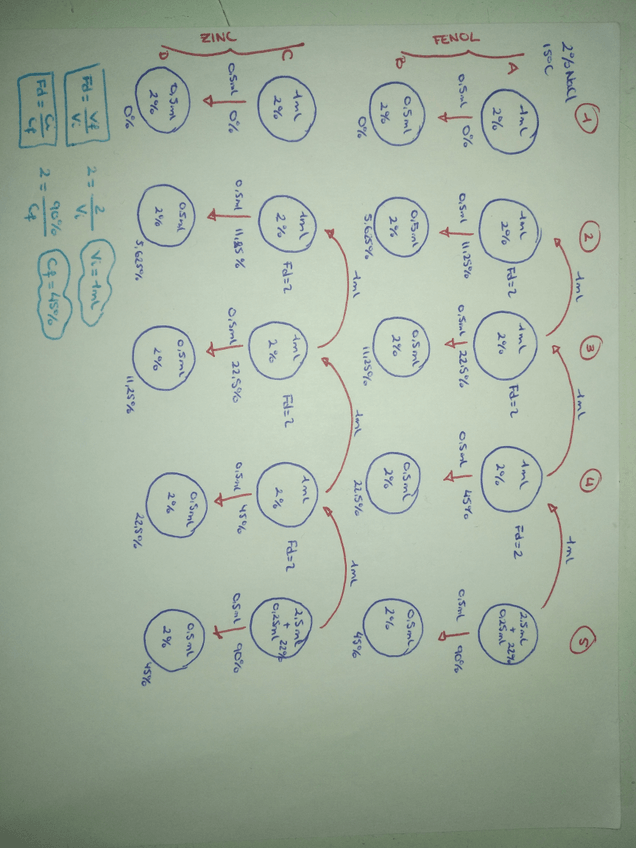 2% NaCl
15°C
1 2 3 4 5
1ml 1ml 1ml
FENOL
A
1ml 1ml 1ml 1ml 2,5ml
2% 2% 2% 2% + 22%
0,25ml
Fd=2 Fd=2 Fd=2
0,5ml 0% 0,5ml 11,25% 0,5ml 22,5% 0,5ml 45% 0,5ml 90%
B
0,5ml 0,5ml 0,5ml 0,5ml 0,5ml
2% 2% 2% 2% 2%
0% 5,625% 11,25% 22,5% 45%
1ml 1ml 1ml
ZINC
C
1ml 1ml 1ml 1ml 2,5ml
2% 2% 2% 2% + 22%
0,25ml
Fd=2 Fd=2 Fd=2
0,5ml 0% 0,5ml 11,25% 0,5ml 22,5% 0,5ml 45% 0,5ml 90%
D
0,5ml 0,5ml 0,5ml 0,5ml 0,5ml
2% 2% 2% 2% 2%
0% 5,625% 11,25% 22,5% 45%
Fd = Vf/Vi 2 = 2/Vi Vi = 1ml
Fd = Ci/Cf 2 = 90%/Cf Cf = 45%